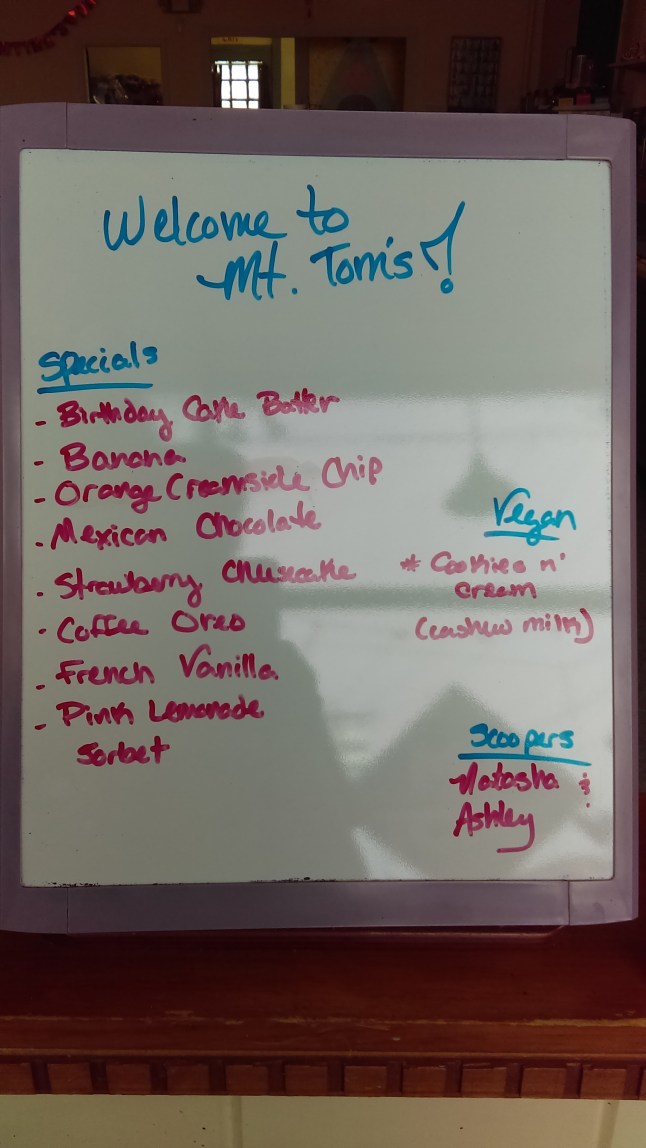 Welcome to
Mt. Tom's!
Specials
- Birthday Cake Batter
- Banana
- Orange Creamsicle Chip
- Mexican Chocolate
- Strawberry Cheesecake
- Coffee Oreo
- French Vanilla
- Pink Lemonade
Sorbet
Vegan
* Cookies n'
Cream
(cashew milk)
Scoopers
Natasha &
Ashley